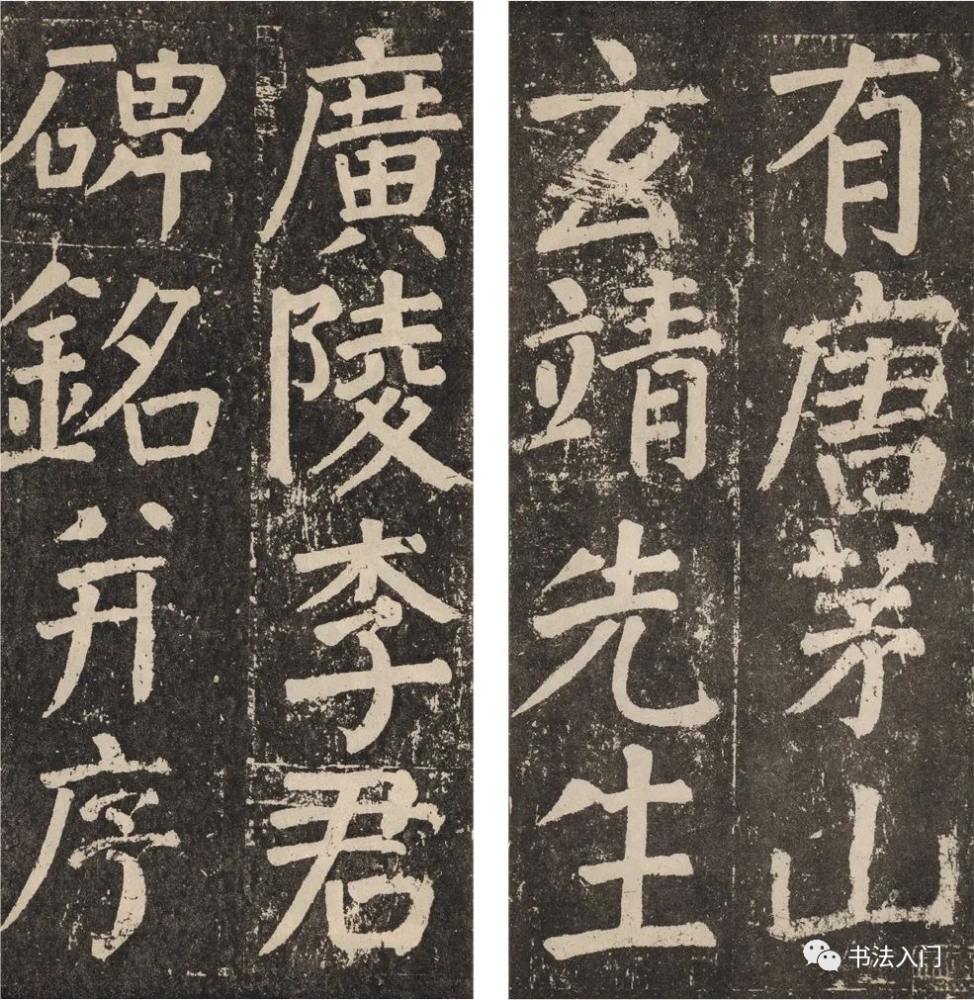 有唐茅山
玄靖先生
廣陵李君
碑銘并序
书法入门